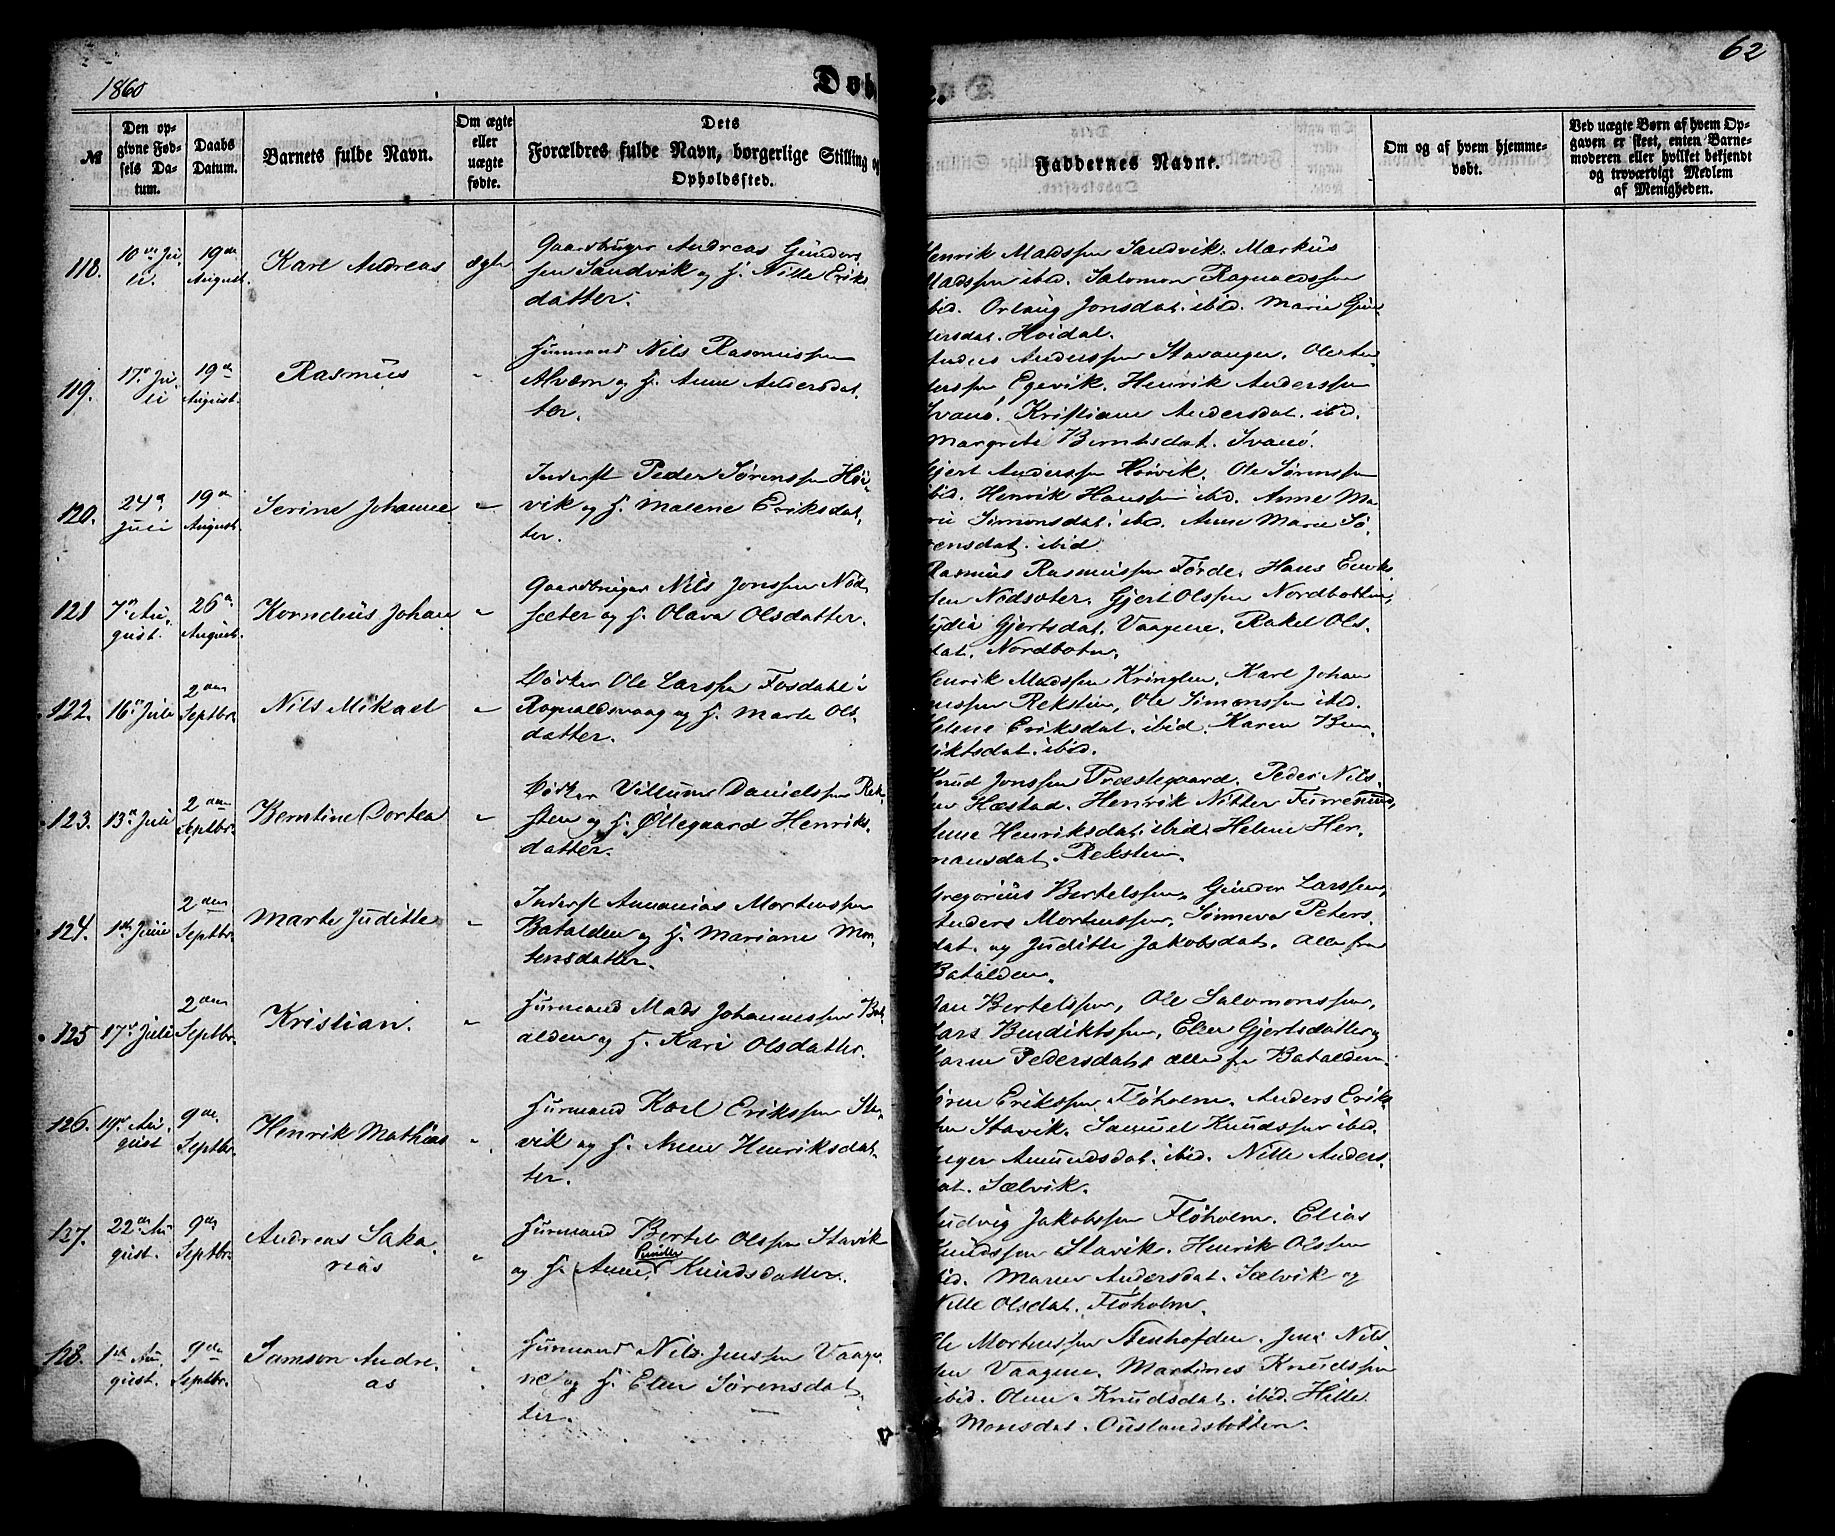 1860
Døb
e.
62
№
Den op-
givne Fød-
sels Da-
tum.
Daabs
Datum.
Barnets fulde Navn.
Om ægte
eller
uægte
fødte.
Dets
Forældres fulde Navn, borgerlige Stilling og
Opholdssted.
Faddernes Navne.
Om og af hvem hjemme-
døbt.
Ved uægte Børn af hvem Op-
gaven er skeet, enten Barne-
moderen eller hvilket bekjendt
og troværdigt Medlem
af Menigheden.
118.
10de Ju-
li.
19de
August.
Karl Andreas
ægte
Gaardbruger Andreas Gunders
sen Sandvik og H. Nille Eriks
datter.
Henrik Madssen Sandvik. Markus
Madssen ibid. Salomon Ragnaldssen
ibid. Orlaug Jonsdat. ibid. Marie Gun
dersdat. Hoidal.
119.
17de Ju-
li
19de
August.
Rasmus
"
Huusmand Nils Rasmussen
Alværn og H. Anne Andersdat,
ter.
Anders Anderssen Stavanger. Ole An
derssen Egevik. Henrik Anderssen
Svanø. Kristiane Andersdat. ibid.
Margrete Berntsdat. Svanø.
120.
24de
Juli
19de
August.
Serine Johanne
"
Inderst Peder Sørenssen Høi-
vik og H. Malene Eriksdat,
ter.
Gjert Anderssen Hoivik. Ole Sørenssen
ibid. Henrik Hanssen ibid. Anne Ma
rie Simonsdat. ibid. Anne Marie Sø
rensdat. ibid.
121
7de Au-
gust.
26de
August.
Kornelius Johan
"
Gaardbruger Nils Jonssen Nød
sæter og H. Olava Olsdatter.
Rasmus Rasmussen Førde. Hans Eriks
sen Nødsæter. Gjert Olssen Nordbotten,
Lydia Gjertsdat. Vaagene. Rakel Ols-
dat. Nordboten.
122.
16de Juli
2den
Septbr.
Nils Mikael
"
Bødker Ole Larssen Fosdahl i
Rognaldsvaag og H. Marte Ols
datter.
Henrik Madssen Kringlen, Karl Johan
nssen Reksten, Ole Simonssen ibid.
Helene Eriksdat. ibid. Karen Ben
diktsdat. ibid.
123.
13de Juli
2den
Septbr.
Berntine Dortea
"
Bødker Villum Danielssen Rek-
sten og H. Øllegaard Henriks,
datter.
Knud Jonssen Præstegaard. Peder Nils-
sen Hæstad. Henrik Nitter Furresund,
Anne Henriksdat. ibid. Helene Her-
mansdat. Reksten.
124.
1ste Juli
2den
Septbr.
Marte Juditte
"
Inderst Annanias Mortenssen
Batalden og H. Mariane Mor-
tensdatter.
Gregorius Bertelssen, Gunder Larssen,
Anders Mortenssen, Sønneva Peters
dat. og Juditte Jakobsdat. Alle fra
Batalden.
125
17de Juli
2den
Septbr.
Kristian.
"
Huusmand Mads Johannessen Bat
alden og H. Kari Olsdatter.
Jan Bertelssen, Ole Salomonssen,
Lars Bendiktssen, Elen Gjertsdatter og
Maren Pedersdat. alle fra Batalden
126.
19de Au-
gust
9de
Septbr.
Henrik Mathias
"
Huusmand Karl Erikssen Sta-
vik og H. Anne Henriksdat-
ter.
Søren Erikssen Fløholm. Anders Erik
sen Stavik. Samuel Knudssen ibid.
Inger Amundsdat. ibid. Nille Anders-
dat. Sælvik.
127.
22de Au
gust.
9de
Septbr.
Andreas Saka,
rias
"
Huusmand Bertel Olssen Stavik
og H. Anne Pernille Knudsdatter.
Ludvig Jakobssen Fløholm. Elias
Knudssen Stavik. Henrik Olssen
ibid. Maren Andersdat. Sælvik og
Nille Olsdat. Fløholm.
128.
1ste Au-
gust.
9de
Septbr.
Samson Andre-
as
"
Huusmand Nils Jenssen Vaage-
ne og H. Elen Sørensdat
ter.
Ole Mortenssen Stenhofden. Jens Nils
sen Vaagene. Martines Knudssen
ibid. Oline Knudsdat. ibid. Hille
Monsdat. Ouslandsbotten.